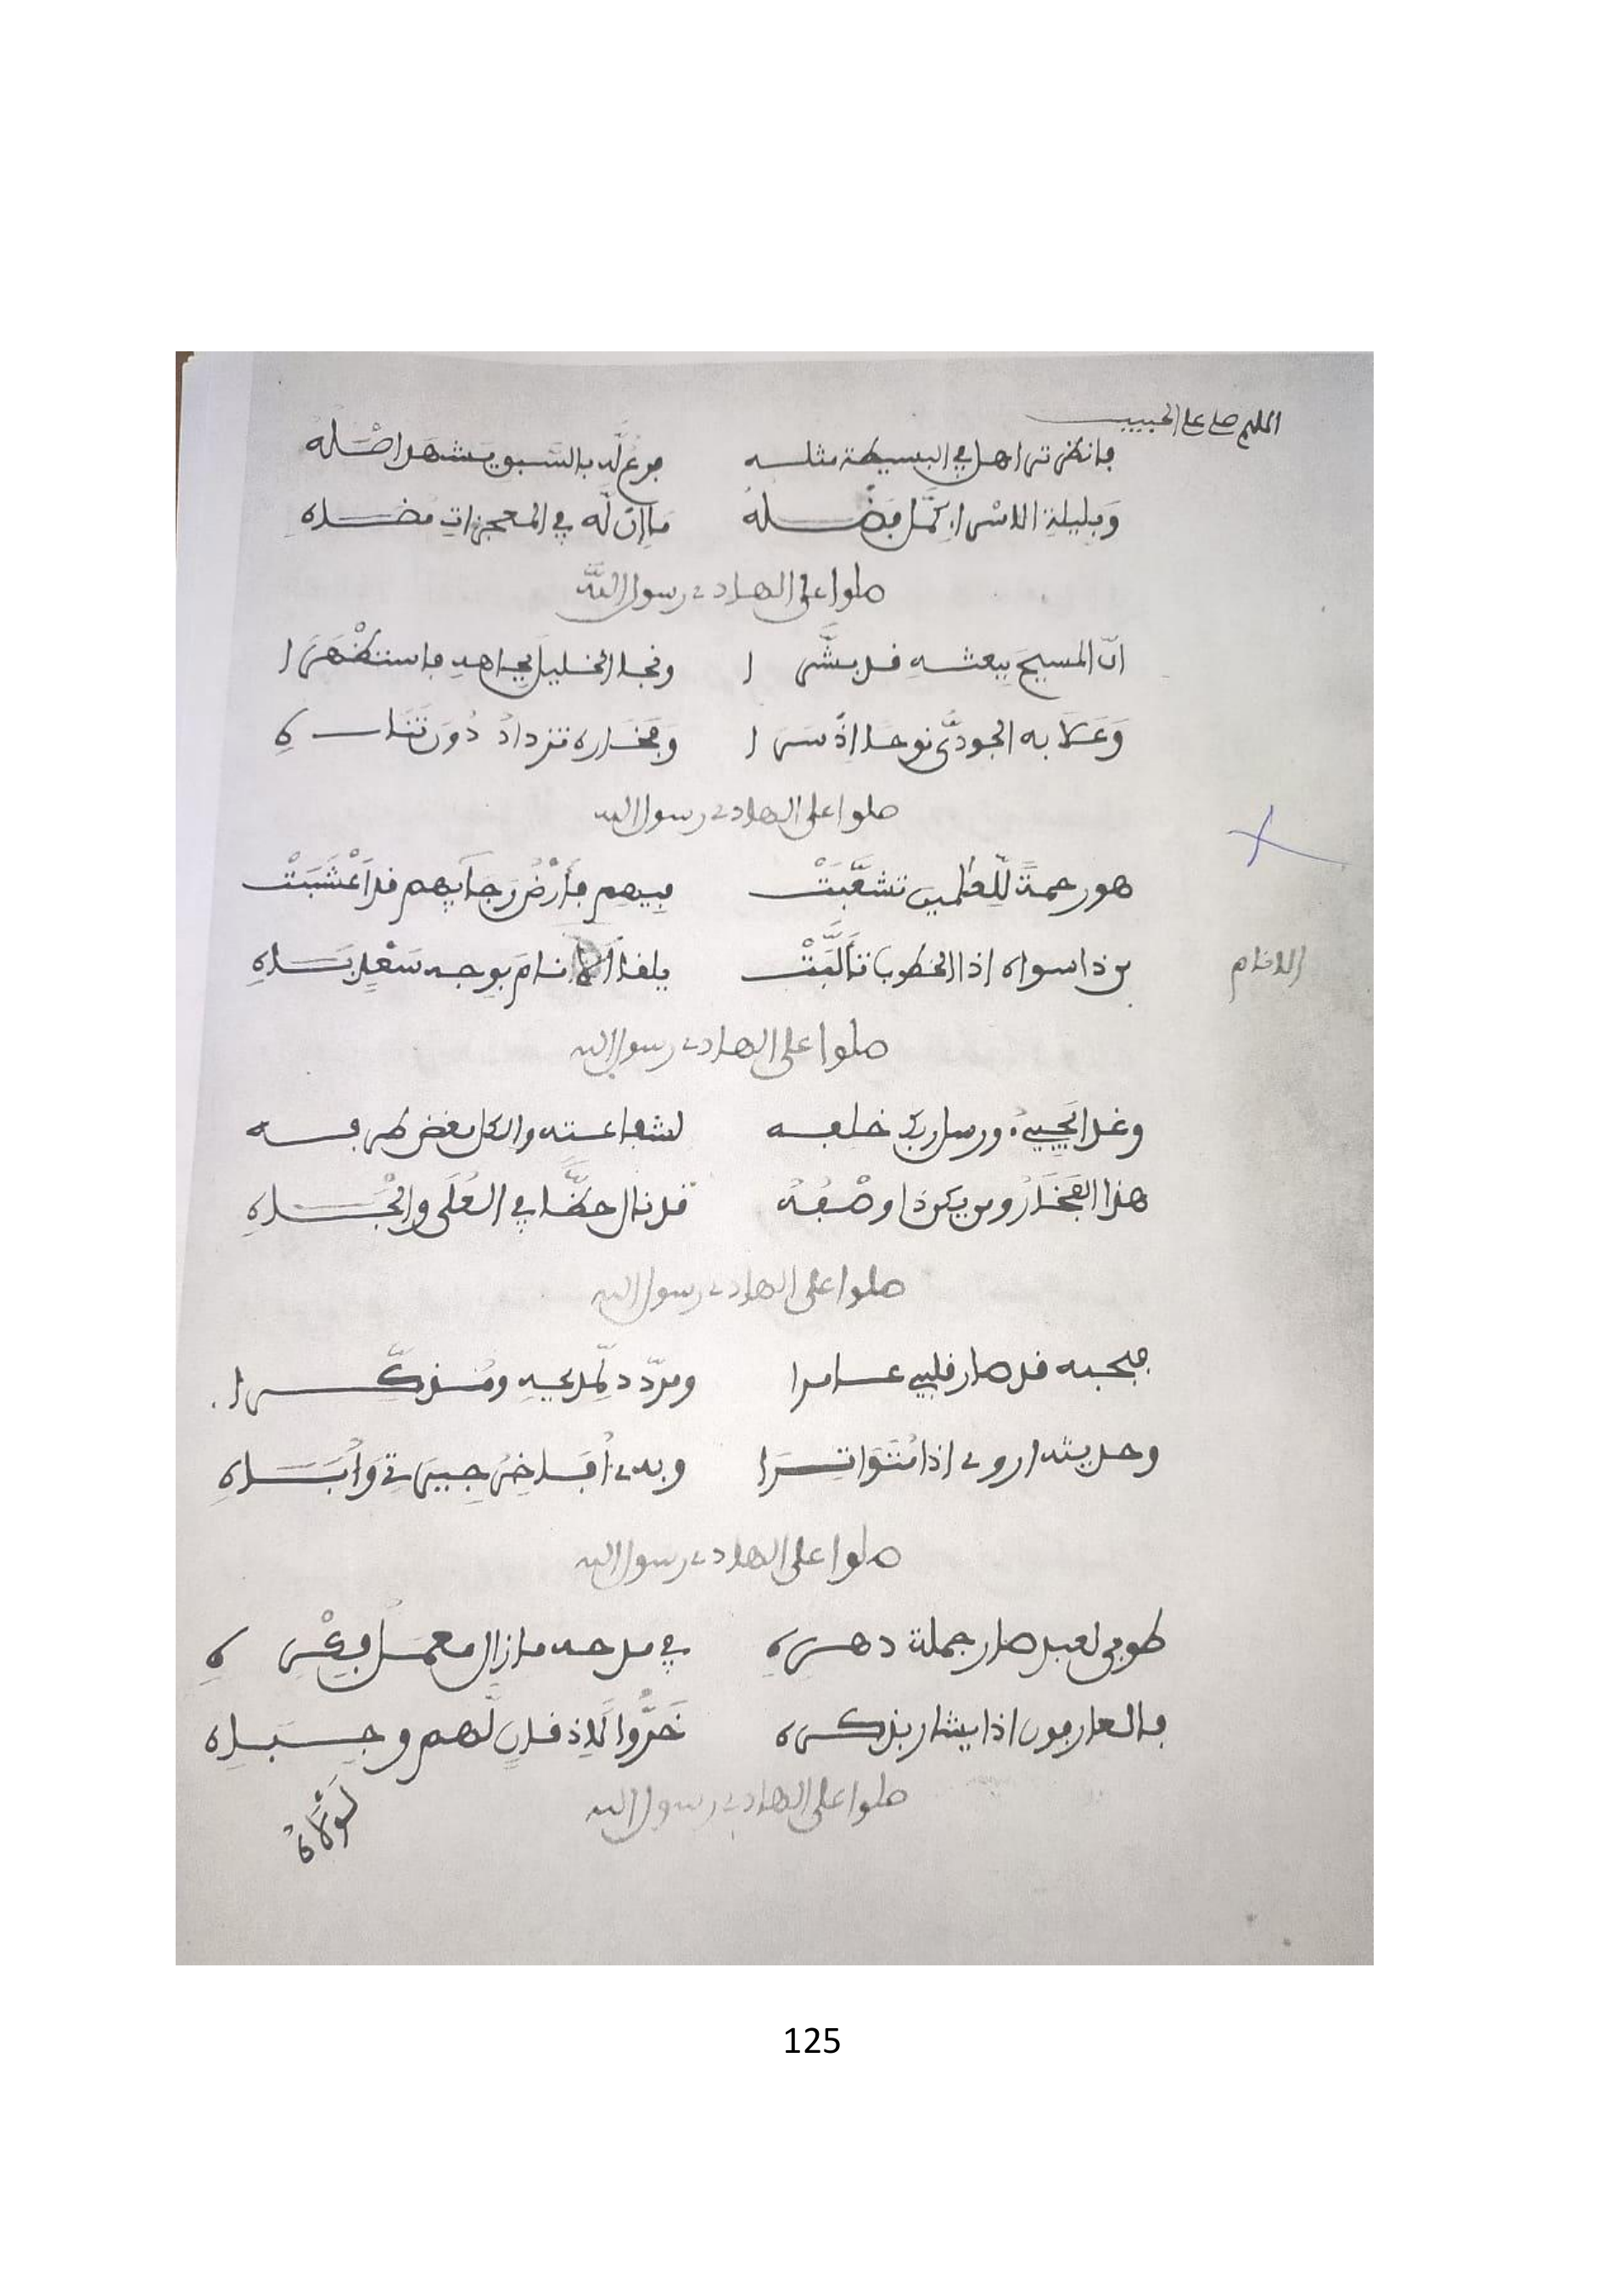 اللهم صل على الحبيب
فانظر تراهل في البسيطة مثله فرع له بالسبق يشهد اصله
وبليلة الاسرا كمل فضله ما إن له في المعجزات مضاه
صلوا على الهادي رسول الله
ان المسيح ببعثه قد بشرا ونجا الخليل بجاهه فاستظهرا
وعلا به الجودي نوحا اذ سرا وفخاره تزداد دون تناه
صلوا على الهادي رسول الله
هو رحمة للعلمين تشعبت فيهم فأرض رجآيهم قد اعشبت
من ذا سواه اذا الخطوب تألبت يلقا الانام بوجه سعد باه
الانام
صلوا على الهادي رسول الله
وغدا يجيء ورسل ربك خلفه لشفاعته والكل يغض طرفه
هذا الفخار ومن يكن ذا وصفه قد نال حظا في العلى والجاه
صلوا على الهادي رسول الله
فبحبه قد صار قلبي عامرا ومردد لمديحه ومذكرا
وحديثه اروي اذا متواترا وبه أفاخر جيرتي وأباه
صلوا على الهادي رسول الله
طوبى لعبد صار جملة دهره في مدحه مازال معمل فكره
فالعارفون اذا يشار بذكره خروا لاذقان لهم وجباه
صلوا على الهادي رسول الله
لولاه
125